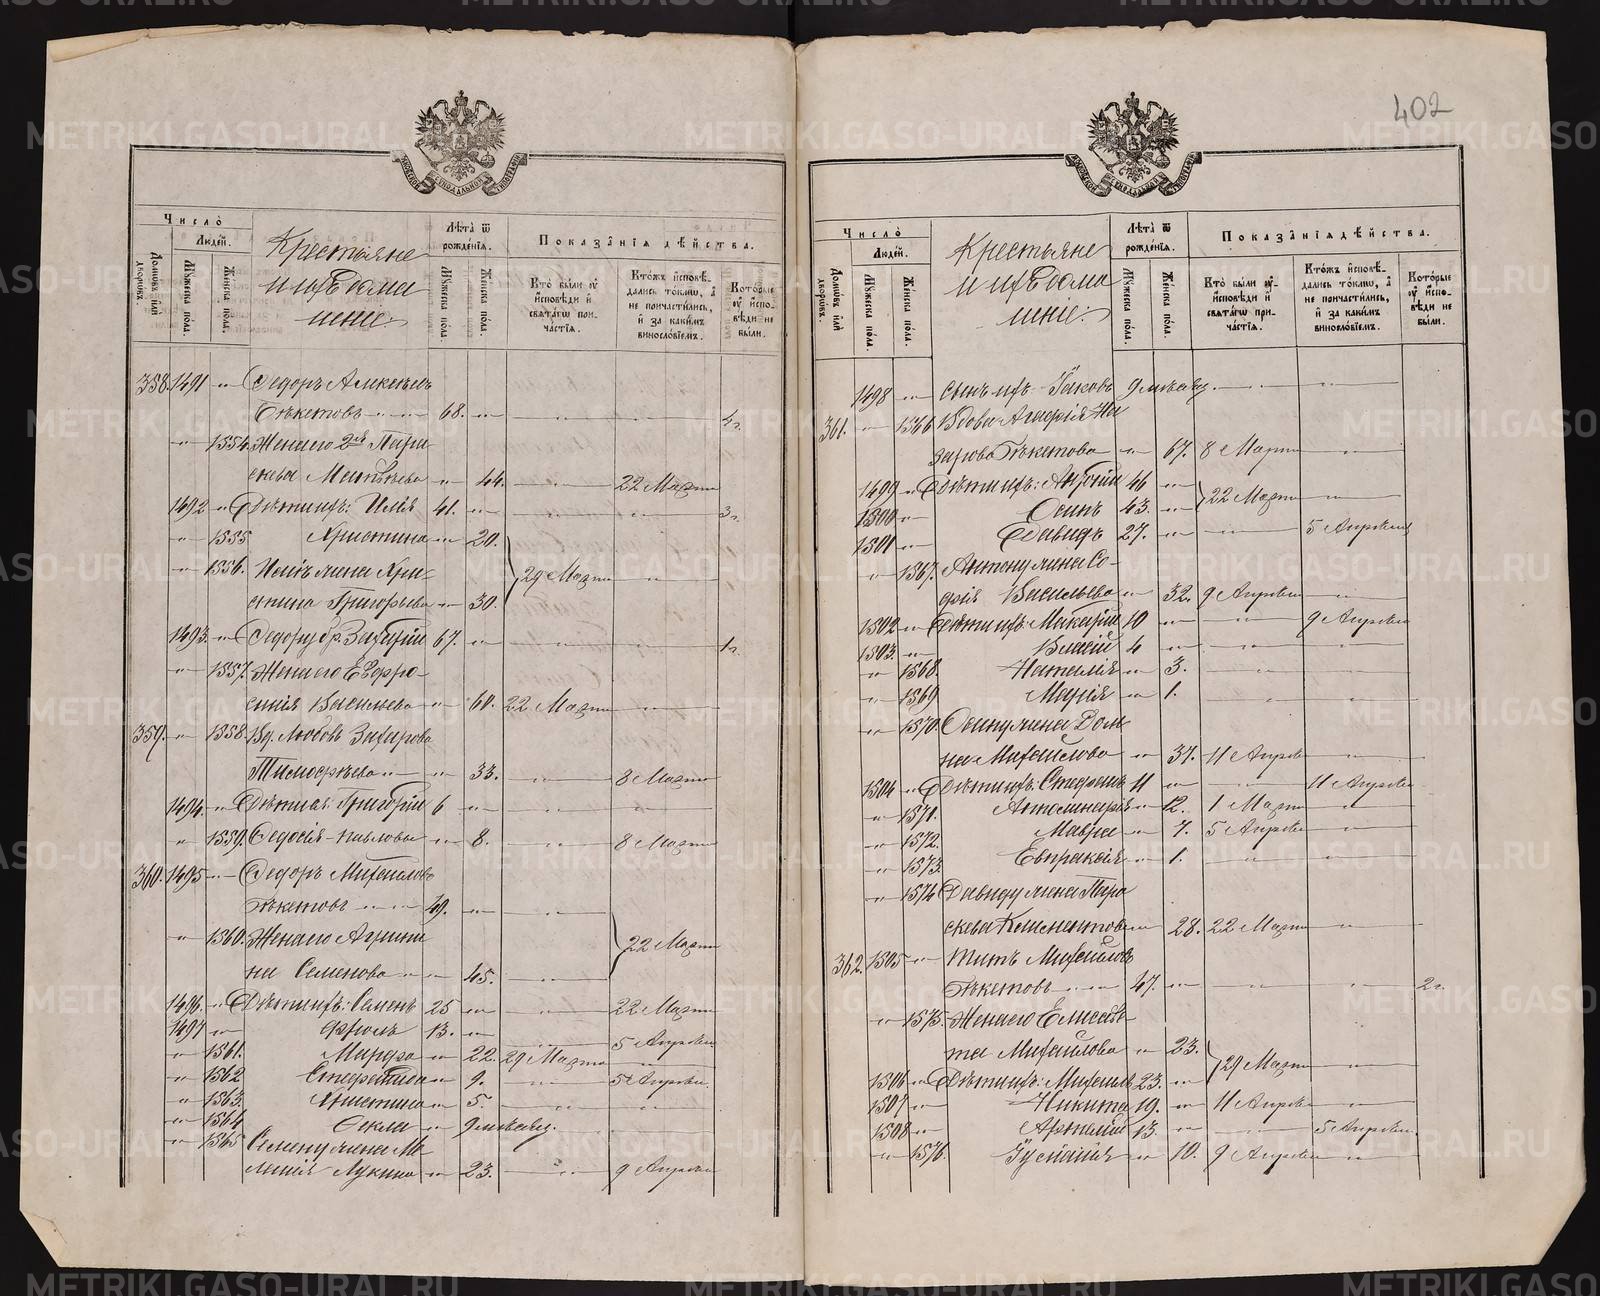 402
Число̀
Людей.
Домѡвъ илѝ дворѡвъ.
Мꙋжеска по́ла.
Женска по́ла.
Крестьяне
и ихъ дома
шніе:
Лѣта ѿ
рождєнїѧ.
Мꙋжеска по́ла.
Женска по́ла.
Показа́нїѧ дѣйства.
Кто̀ бы́ли ᲂу҆ и҆сповѣди и҆ свѧта́гѡ при­ча́стїѧ.
Кто́жъ и҆сповѣ́дались то́кмѡ, а҆ не причасти́лись, и҆ за каки́мъ винословїемъ.
Кото́рые ᲂу҆ и҆спо­вѣди не бы́ли.
358. 1491 " Федоръ Алексѣевъ
Бѣкетовъ " " 68. " " " 4 г.
" 1554. Жена его 2я Пара-
скева Матвѣева " 44. " 22 Марта
1492 " Дѣти ихъ: Илія 41. " " " 3 г.
" 1555 Христина " 20.
" 1556. Иліѣ жена Хри-
стина Григорьева " 30. 29 Марта "
1493. " Федору бр. Захарій 67. " " " 1 г.
" 1557. Жена его Евфро-
синія Васильева " 60. 22 Марта "
359. " 1558. Вд. Любовь Захарова
Тимофѣева " " 33. " 8 Марта
1494. " Дѣти ея: Григорій 6 " " "
" 1559. Федосія Павлова " 8. " 8 Марта
360. 1495 " Федоръ Михаиловъ
Бѣкетовъ " " 49. " "
" 1560. Жена его Агрипи-
на Семенова " " 45. " 22 Марта
1496. " Дѣти ихъ: Семенъ 25 " " 22 Марта
1497 " Фролъ 13. " " 5 Апрѣля
" 1561. Марфа " 22. 29 Марта "
" 1562 Стефанида " 9. " 5 Апрѣля.
" 1563. Христина " 5. " "
" 1564 Фекла " 9 мѣсяц.
" 1565 Семену жена Ме-
ланія Лукина " 23. " 9 Апрѣля
Число̀
Людей.
Домѡвъ илѝ дворѡвъ.
Мꙋжеска по́ла.
Женска по́ла.
Крестьяне
и ихъ дома
шніе:
Лѣта ѿ
рождєнїѧ.
Мꙋжеска по́ла.
Женска по́ла.
Показа́нїѧ дѣйства.
Кто̀ бы́ли ᲂу҆ и҆сповѣди и҆ свѧта́гѡ при­ча́стїѧ.
Кто́жъ и҆сповѣ́дались то́кмѡ, а҆ не причасти́лись, и҆ за каки́мъ винословїемъ.
Кото́рые ᲂу҆ и҆спо­вѣди не бы́ли.
1498 " сынъ ихъ Іаковъ 9 мѣсяц. " "
361. " 1566 Вдова Агафія На-
зарова Бѣкетова " 67. 8 Марта "
1499 " Дѣти ихъ: Антоній 46 "
1500 " Осипъ 43. " 22 Марта "
1501 " Давидъ 27. " " 5 Апрѣля
" 1567. Антону жена Со-
фія Васильева " 32. 9 Апрѣля "
1502 " Дѣти ихъ: Макарій 10 " " 9 Апрѣля
1503. " Власій 4 " " "
" 1568. Наталія " 3. " "
" 1569 Марія " 1. " "
" 1570. Осипу жена Дом-
на Михайлова " 37. 11 Апрѣля "
1504 " Дѣти ихъ: Стефанъ 11 " " 11 Апрѣля
" 1571. Аполинарія " 12. 1 Марта "
" 1572. Мавра " 7. 5 Апрѣля "
" 1573. Евпраксія " 1. " "
" 1574 Давиду жена Пара-
скева Климентова " 28. 22 Марта "
362. 1505 " Титъ Михайловъ
Бѣкетовъ " " 47. " " " 2 г.
" 1575. Жена его Елисаве-
та Михайлова " 23.
1506 " Дѣти ихъ: Михаилъ 23. " 29 Марта "
1507 " Никита 19. " 11 Апрѣля "
1508 " Артемій 13. " " 5 Апрѣля.
" 1576. Іуліанія " 10. 9 Апрѣля "
METRIKI.GASO-URAL.RU